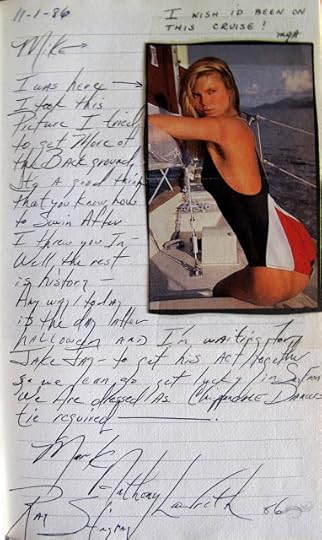 11-1-86
I WISH I'D BEEN ON
THIS CRUISE!
MGH
Mike
I was here →
I took this
Picture I tried
to get More of
the Background,
It's A good thing
that you know how
to Swim After
I threw you In -
Well the rest
is history -
Any way today
is the day after
HALLOWEEN AND I'm waiting for
JAKE - to get his Act together
so we can go get lucky in
We Are dressed As Chippendale Dancers
tie required
Mark
Anthony
Ray
86